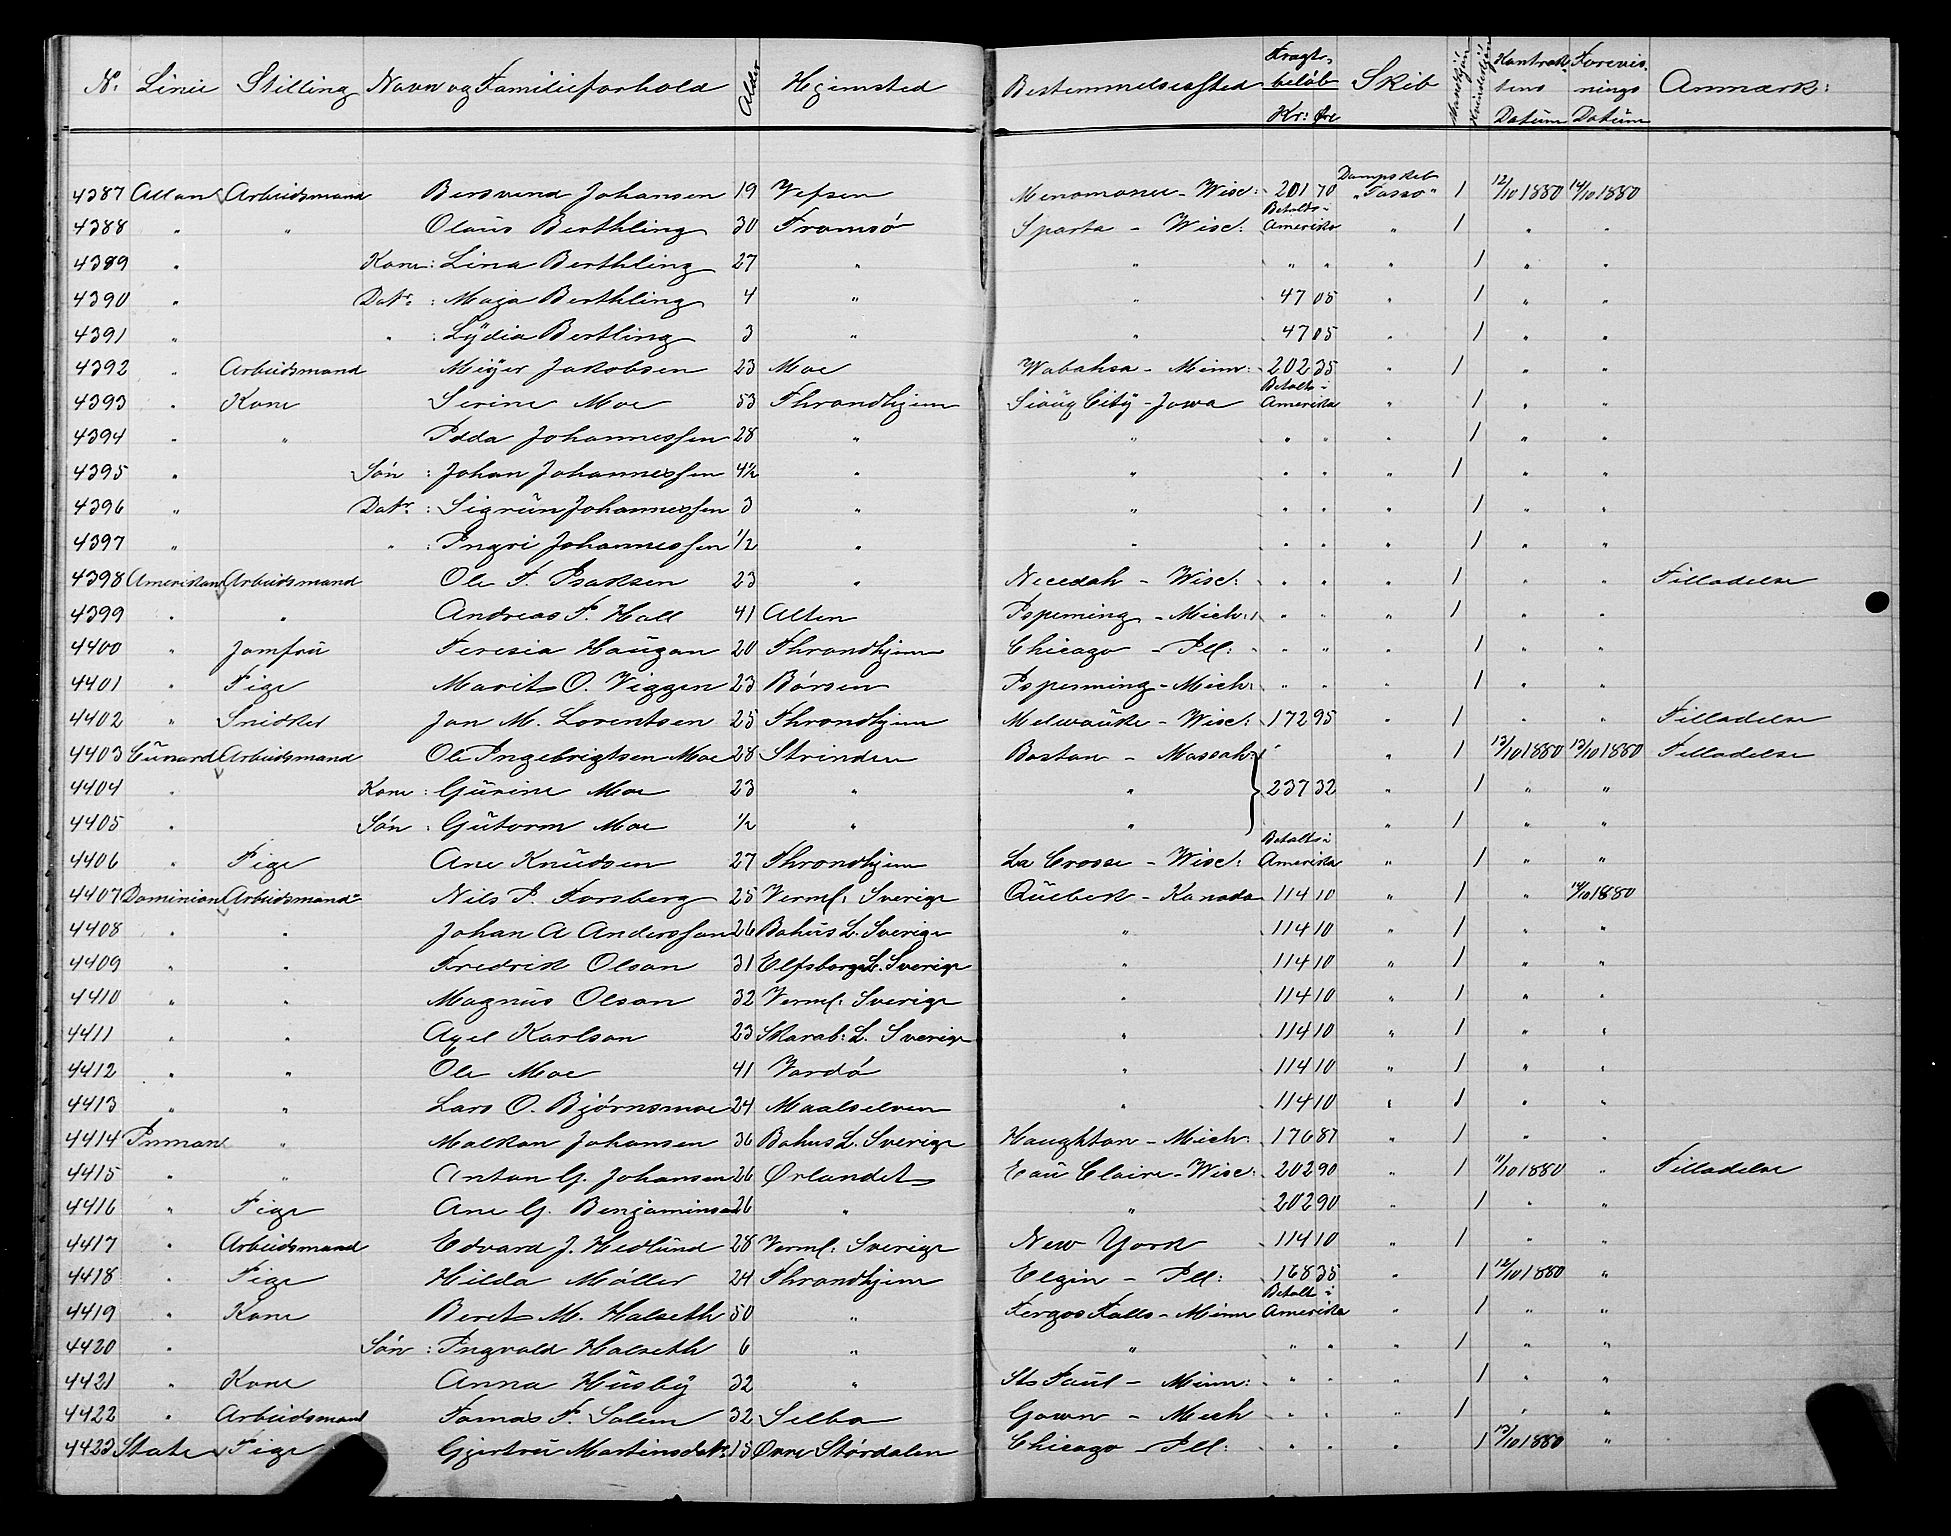 N. Linie Stilling Navn og Familieforhold Alder Hjemsted Bestemmelsessted Fragtbeløb Kr: Øre Skib Mandkjøn Kvindekjøn Kontraktens Datum Forevisnings Datum Anmærk:
4387 Allan Arbeidsmand Bersvend Johansen 19 Vefsen Menomonee - Wisc: 201 70 Dampskib "Tasso" 1 12/10 1880 14/10 1880
4388 " " Olaus Berthling 30 Tromsø Sparta - Wisc: Betalt i Amerika " 1 " "
4389 " Kone: Lina Berthling 27 " " " " " 1 " "
4390 " Datr. : Maja Berthling 4 " " 47 05 " 1 " "
4391 " " : Lydia Bertling 3 " " 47 05 " 1 " "
4392 " Arbeidsmand Meyer Jakobsen 23 Moe Wabahsa - Minn: 202 35 " 1 " "
4393 " Kone Serine Moe 53 Throndhjem Sioux City - Jowa Betalt i Amerika " 1 " "
4394 " " Idda Johannessen 28 " " " " " 1 " "
4395 " Søn : Johan Johannessen 4½ " " " " " 1 " "
4396 " Datr. : Sigrun Johannessen 3 " " " " " 1 " "
4397 " " : Ingri Johannessen ½ " " " " " 1 " "
4398 Amerikan Arbeidsmand Ole T. Isaksen 23 " Necedah - Wisc: " " " 1 " " Tilladelse
4399 " " Andreas F. Hall 41 Alten Ispeming - Mich: " " " 1 " "
4400 " Jomfru Teresia Haugan 20 Throndhjem Chicago - Ill: " " " 1 " "
4401 " Pige Marit O. Viggen 23 Børsen Ispenming - Mich: " " " 1 " "
4402 " Snidker Jon M. Lorentsen 25 Throndhjem Melwauke - Wisc: 172 95 " 1 " " Tilladelse
4403 Cunard Arbeidsmand Ole Ingebrigtsen Moe 28 Strinden Boston - Massah: " 1 13/10 1880 13/10 1880 Tilladelse
4404 " Kone : Gurine Moe 23 " " 237 32 " 1 " "
4405 " Søn : Gutorm Moe ½ " " " 1 " "
4406 " Pige Ane Knudsen 27 Throndhjem La Crosse - Wisc: Betalt i Amerika " 1 " "
4407 Dominion Arbeidsmand Nils P. Forsberg 25 Verml: Sverige Quebek - Kanada 114 10 " 1 " 14/10 1880
4408 " " Johan A Anderssen 26 Bohus L. Sverige " 114 10 " 1 " "
4409 " " Fredrik Olson 31 Elfsborgs L. Sverige " 114 10 " 1 " "
4410 " " Magnus Olson 32 Verml: Sverige " 114 10 " 1 " "
4411 " " Axel Karlson 23 Skarab: L. Sverige " 114 10 " 1 " "
4412 " " Ole Moe 41 Vardø " 114 10 " 1 " "
4413 " " Lars O. Bjørnsmoe 24 Maalselven " 114 10 " 1 " "
4414 Inman " Malkon Johansen 36 Bohus L. Sverige Haughton - Mich: 176 87 " 1 " "
4415 " " Anton G. Johansen 26 Ørlandet Eau Claire - Wisc: 202 90 " 1 11/10 1880 " Tilladelse
4416 " Pige Ane G. Benjaminsen 26 " " 202 90 " 1 " "
4417 " Arbeidsmand Edvard J. Hedlund 28 Verml: Sverige New York 114 10 " 1 " "
4418 " Pige Hilda Møller 24 Throndhjem Elgin - Ill: 168 35 " 1 12/10 1880 "
4419 " Kone Beret M. Halseth 50 " Fergos Falls - Minn Betalt i Amerika " 1 " "
4420 " Søn : Ingvald Halseth 6 " " " " " 1 " "
4421 " Kone Anna Husby 32 " St Paul - Minn: " " " 1 " "
4422 " Arbeidsmand Tomas P. Solem 32 Selbo Gown - Mich " " " 1 " "
4423 State Pige Gjertru Martinsdatr. 15 Øvre Størdalen Chicago - Ill: " " " 1 13/10 1880 "